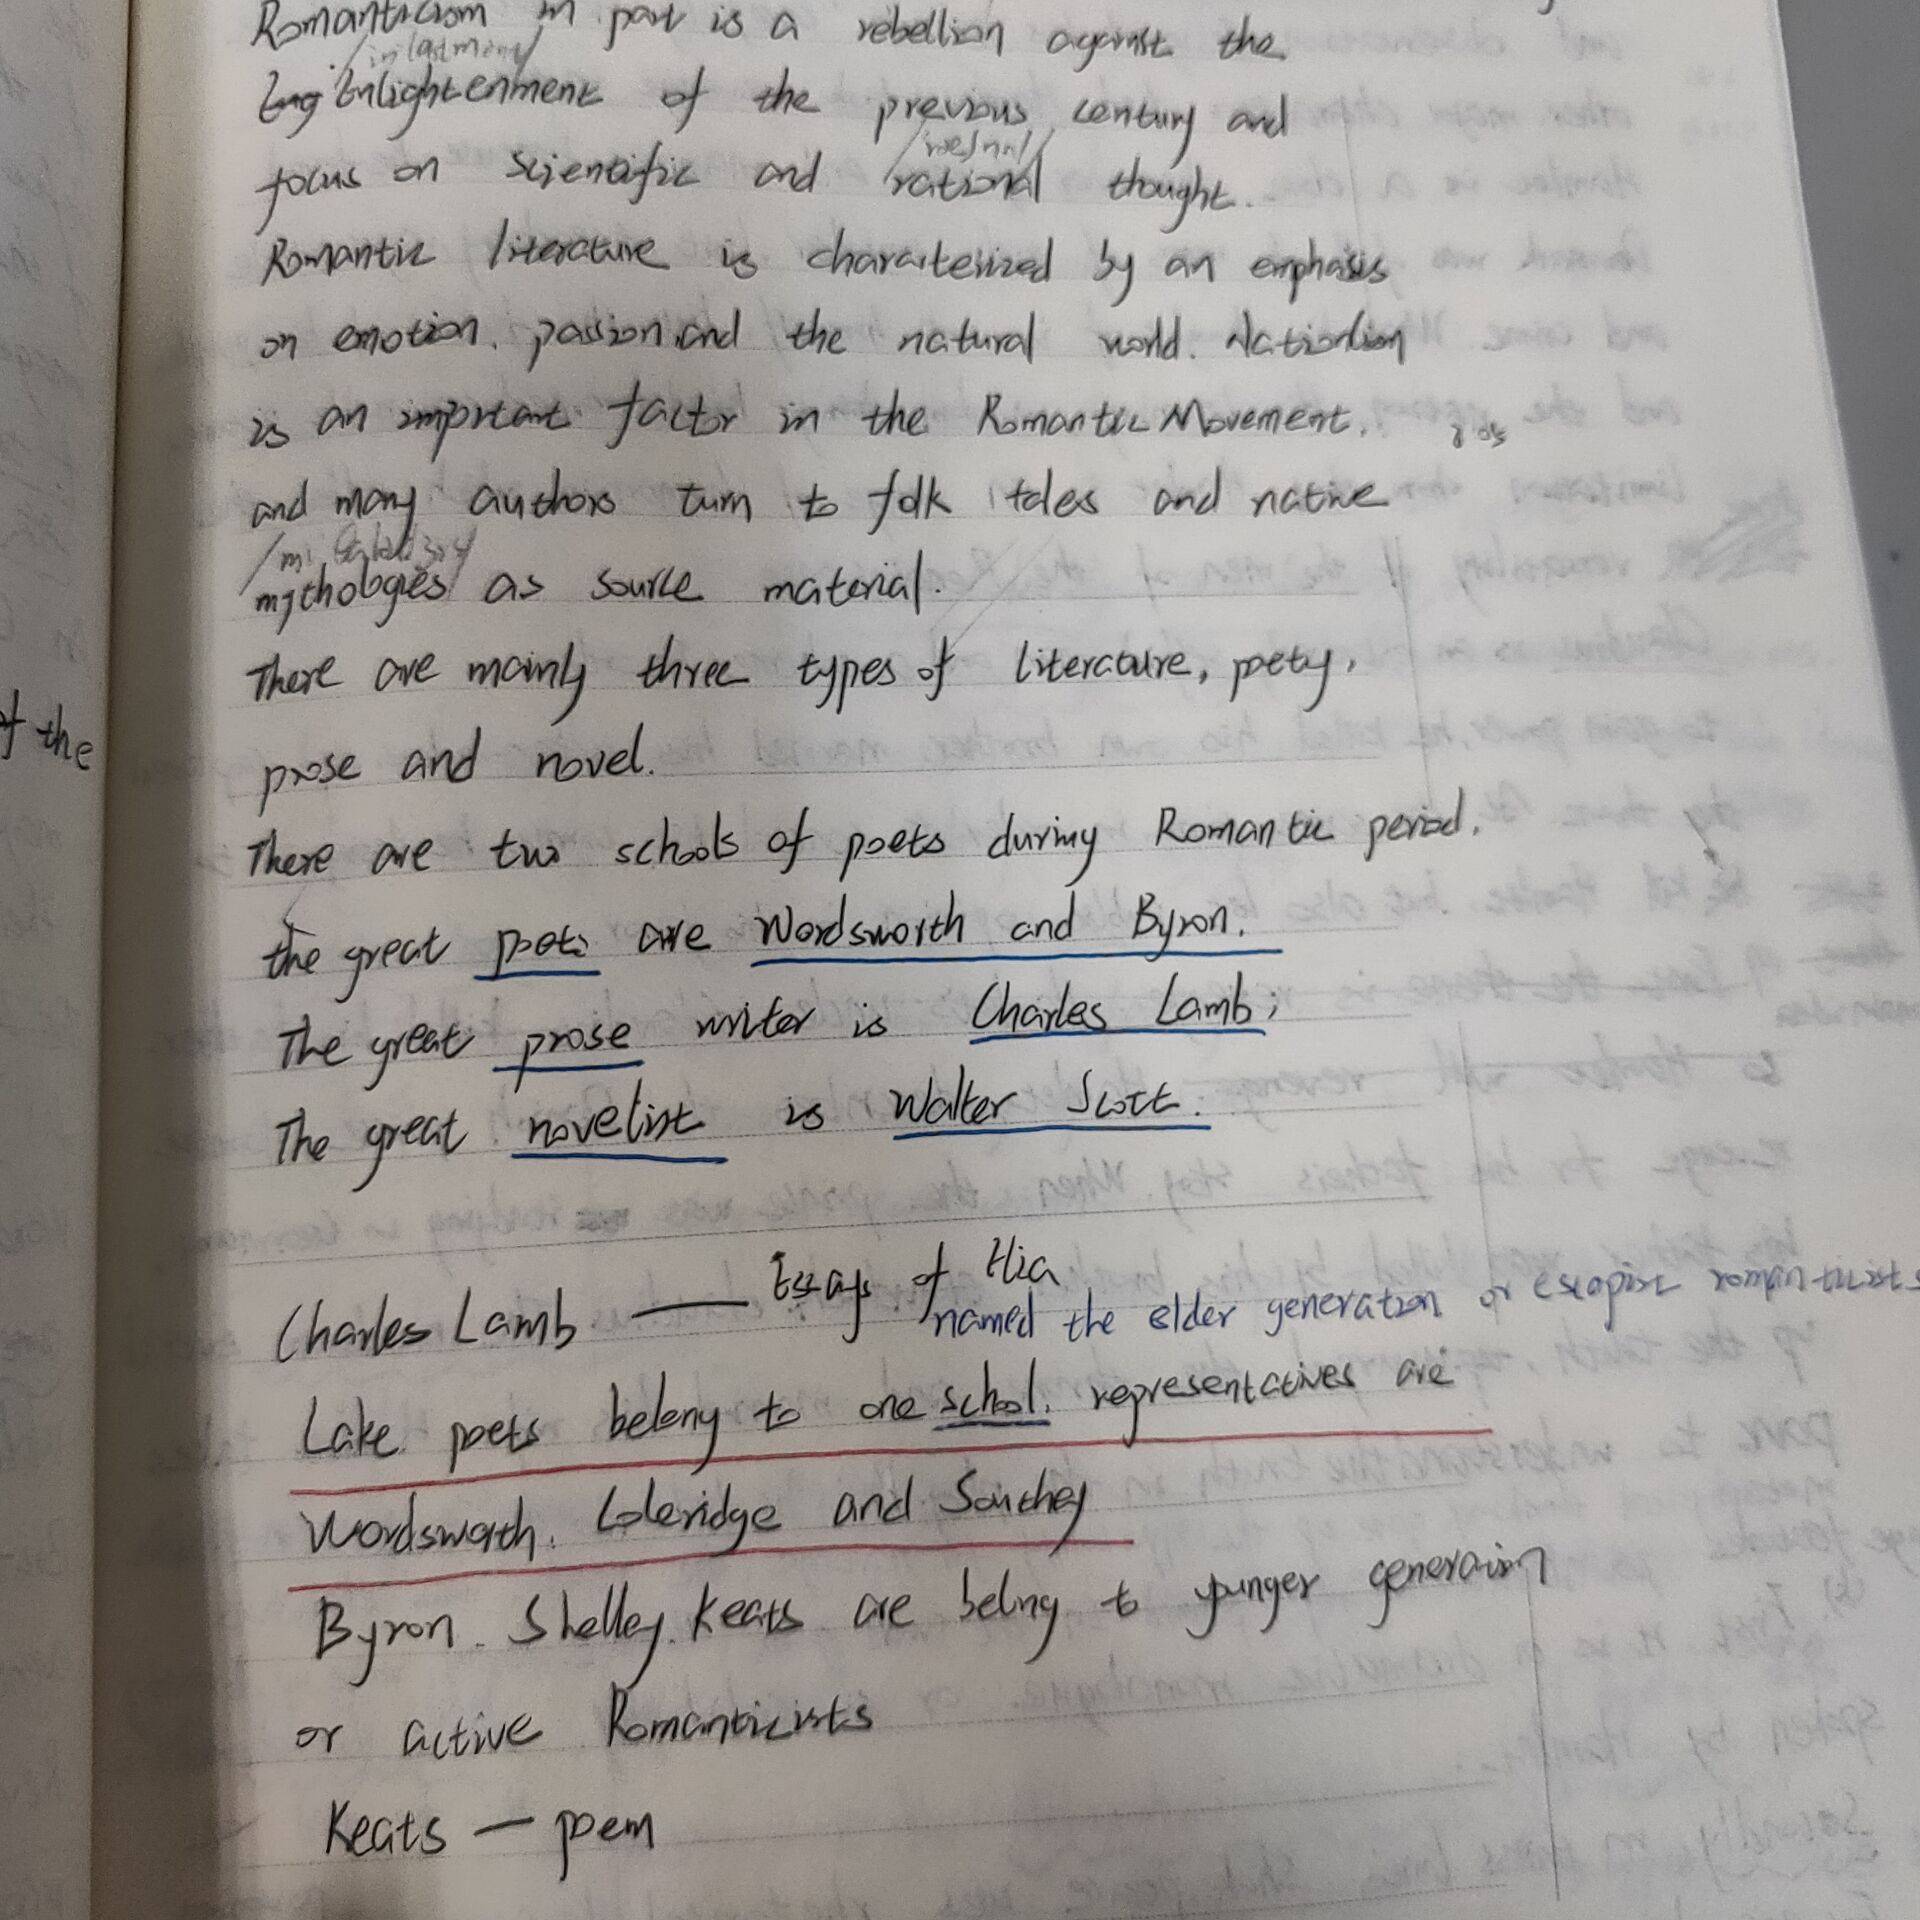 Romanticism in part is a rebellion against the
Enlightenment of the previous century and
focus on scientific and rational thought.
Romantic literature is characterized by an emphasis
on emotion, passion, and the natural world. Nationlism
is an important factor in the Romantic Movement.
and many authors turn to folk tales and native
mythologies as source material.
There are mainly three types of literature, poety,
prose and novel.
of the
There are two schools of poets during Romantic period.
the great poets are Wordsworth and Byron.
The great prose writer is Charles Lamb;
The great novelist is Walter Scott.
Charles Lamb — Essays of Elia
named the elder generation or escapist romanticists
Lake poets belong to one school. representatives are
Wordsworth. Coleridge and Southey
Byron. Shelley. Keats are belong to younger generaion
or active Romanticists
Keats — poem